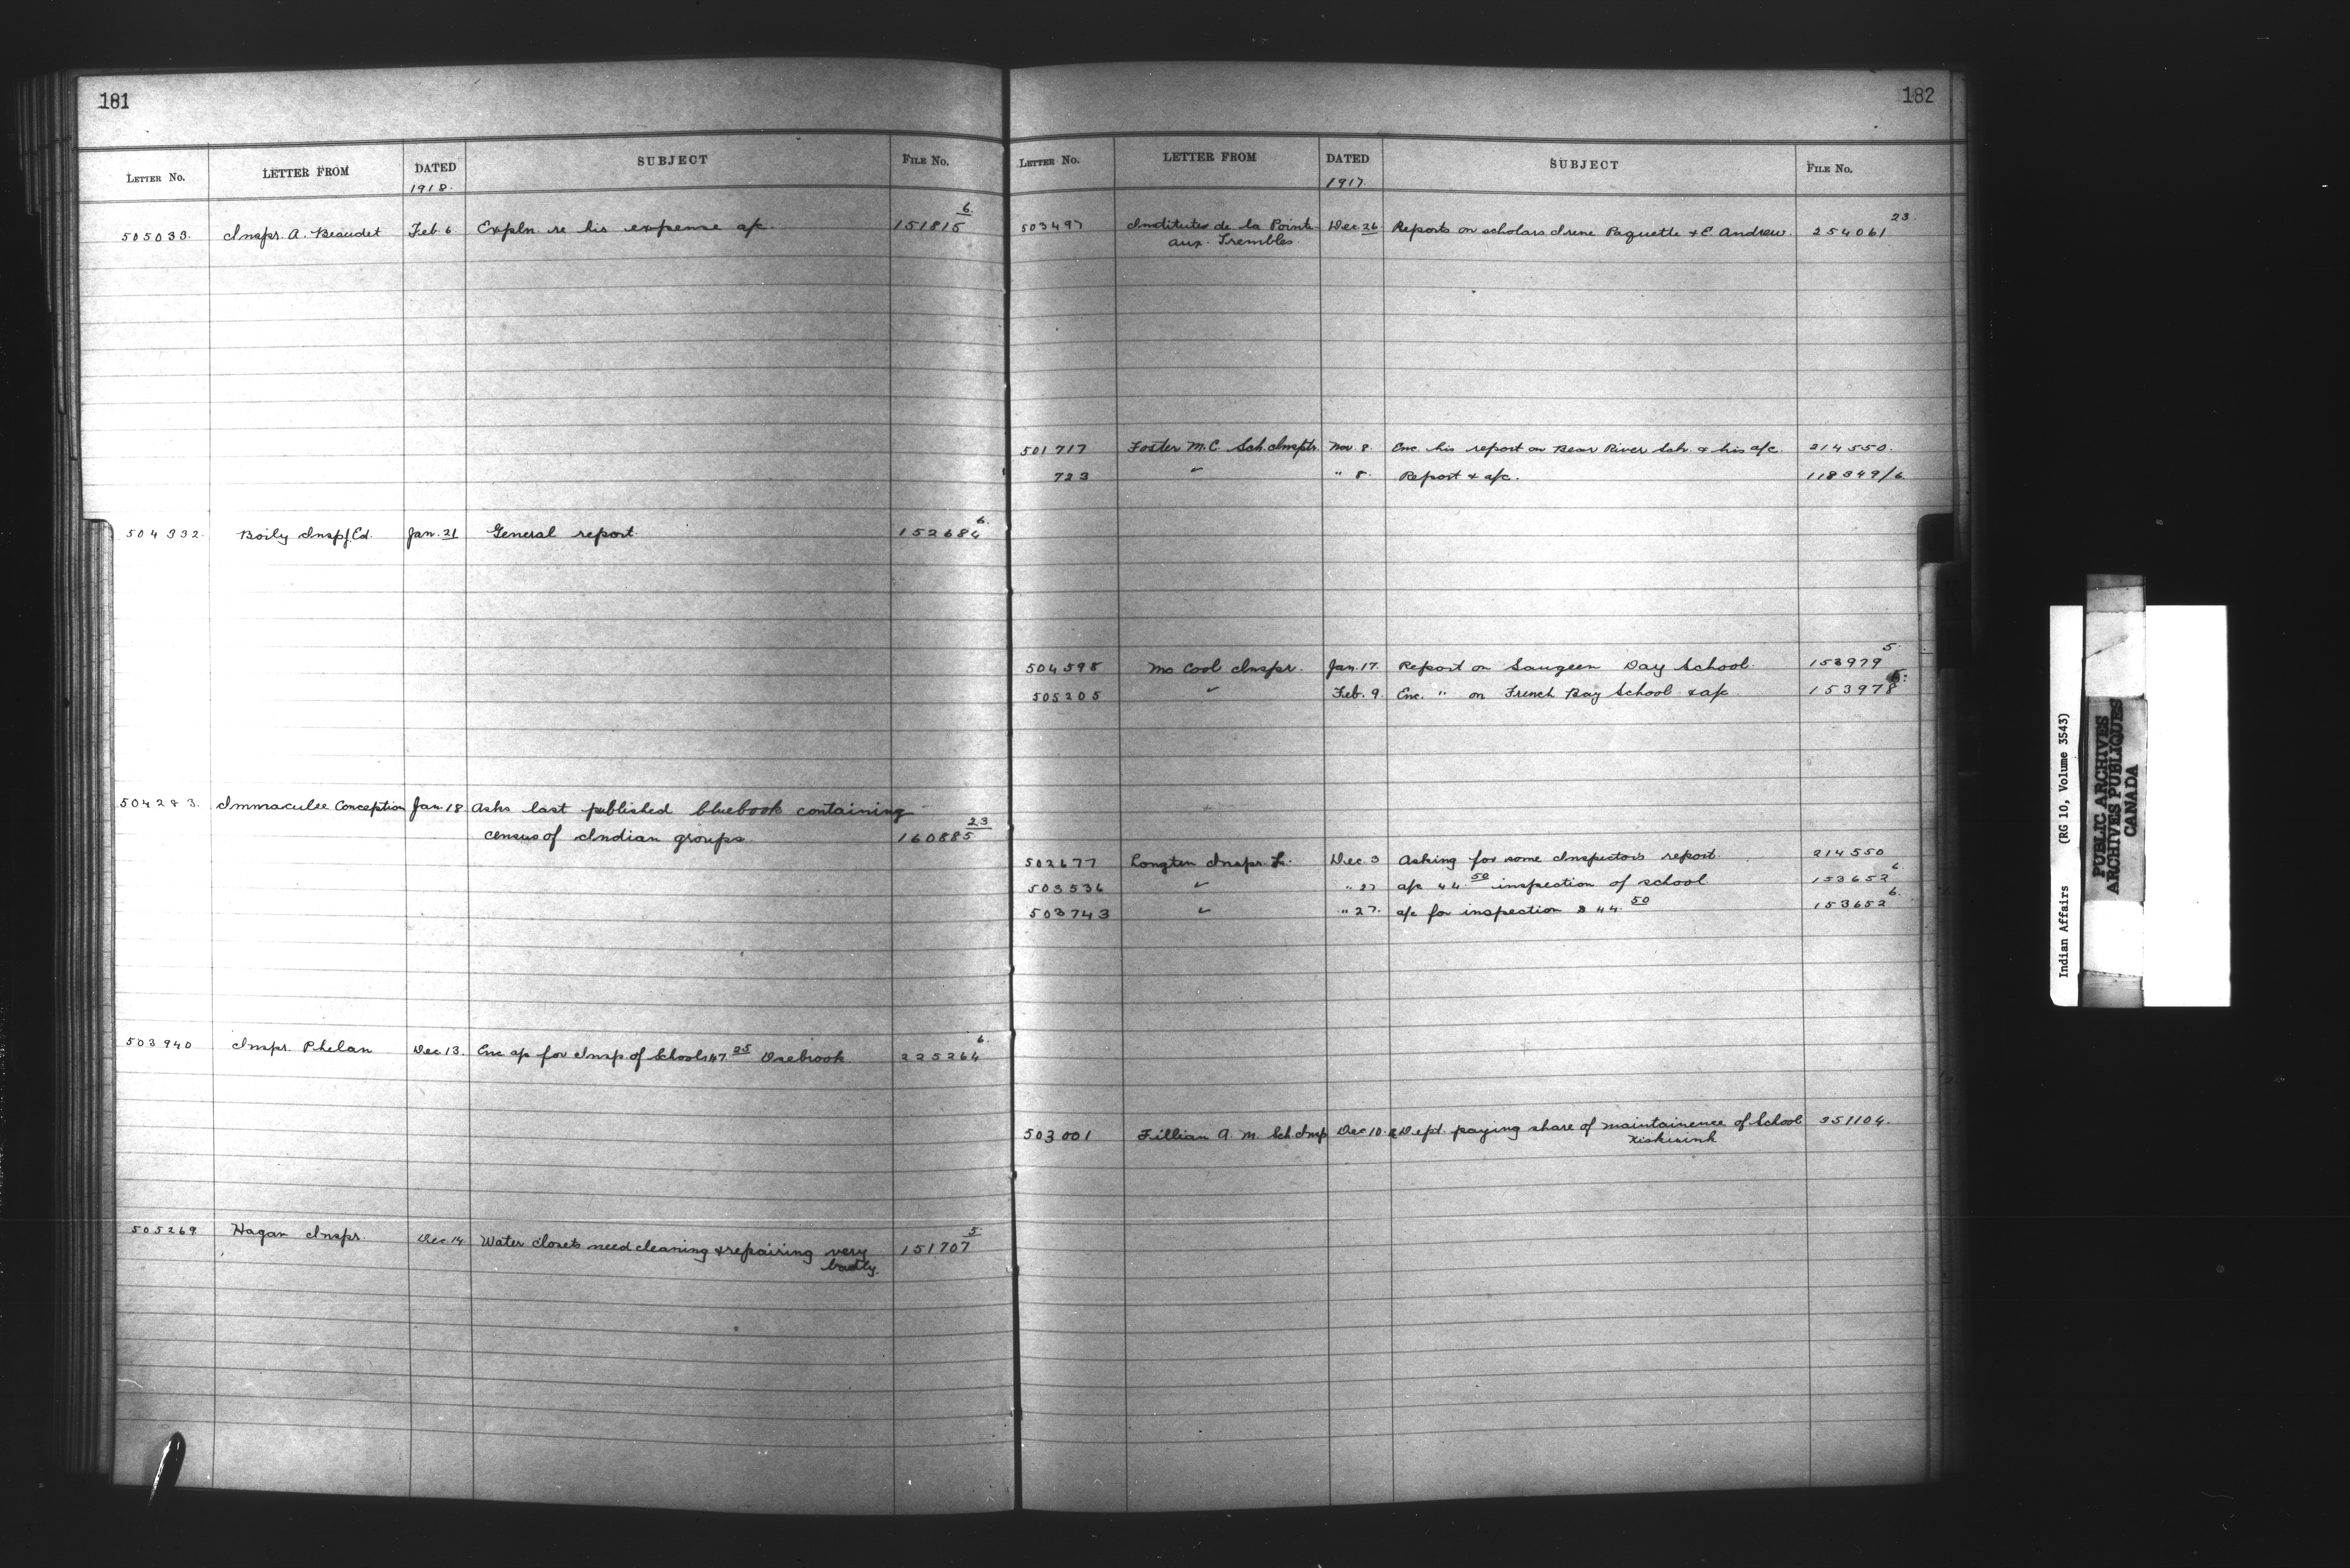 181
LETTER No. LETTER FROM DATED SUBJECT FILE No.
1918.
505033. Inspr. A. Beaudet Feb. 6 Expln. re his expense a/c. 151815 6
504332. Boily Insp/Ed. Jan. 21 General report. 152684 6.
504283. Immaculee Conception Jan. 18 Asks last published bluebook containing
census of Indian groups. 160885 23
503940 Inspr. Phelan Dec 13. Enc a/c for Insp. of Schools 47.25 225264 6.
505269 Hagan Inspr. Dec 14 Water closets need cleaning & repairing very 151707 5
badly.
182
LETTER No. LETTER FROM DATED SUBJECT FILE No.
1917.
503497 Institutes de la Pointe Dec. 26 Reports on scholars Irene Paquette & E. Andrew. 254061 23.
aux Trembles
501717 Foster M.C. Sch. Insptr. Nov. 8. Enc. his report on Bear River Sch. & his a/c. 214550.
723 " " 8. Report & a/c. 118349/6
504598 Mc Cool Inspr. Jan. 17. Report on Saugeen Day School. 153979 5.
505205 " Feb. 9. Enc. " on French Bay School & a/c 153978
502677 Longtin Inspr. Dec. 3 Asking for some Inspectors report. 214550
503536 " " 27 a/c 44.50 inspection of school 153652 6.
503743 " " 27. a/c for inspection $44.50 153652 6.
503001 Fillian A. M. Sch. Insp Dec 10. Dept. paying share of maintainence of School 351104.
Kiskisink
Indian Affairs (RG 10, Volume 3543)
PUBLIC ARCHIVES
ARCHIVES PUBLIQUES
CANADA